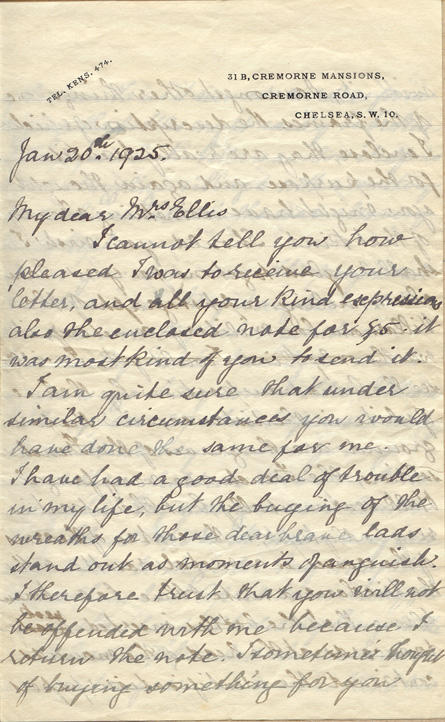 TEL. KENS. 474.
31B, CREMORNE MANSIONS,
CREMORNE ROAD,
CHELSEA, S.W. 10.
Jan 20th. 1925.
My dear Mrs Ellis
I cannot tell you how
pleased I was to receive your
letter, and all your kind expressions
also the enclosed note for it
was most kind of you to send it.
I am quite sure that under
similar circumstances you would
have done the same for me.
I have had a good deal of trouble
in my life, but the buying of the
wreaths for those dear brave lads
stand out as moments of anguish.
I therefore trust that you will not
be offended with me because I
return the note. I sometimes thought
of buying something for you